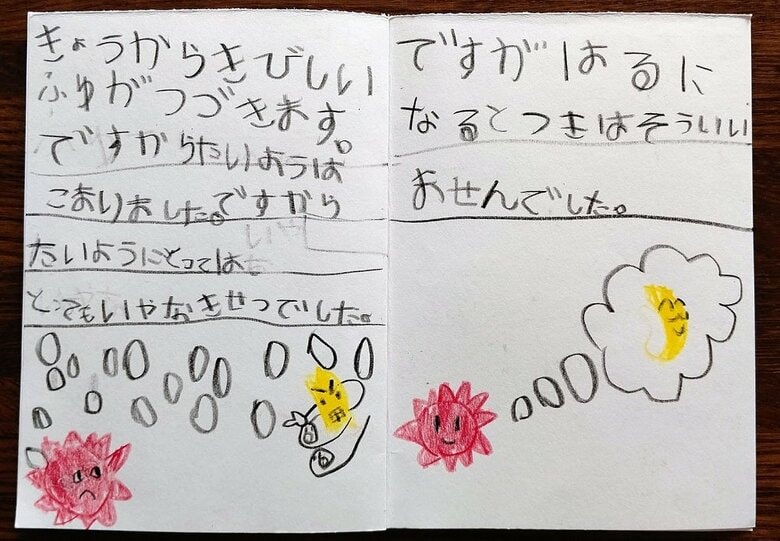 きょうからきびしい
ふゆがつづきます。
ですからたいようは
こおりました。ですから
たいようにとっては
とてもいやなきせつでした。
ですがはるに
なるとつきはそういい
ませんでした。